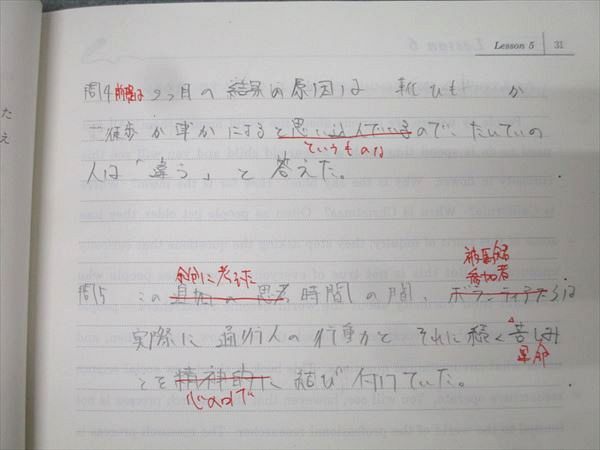 Lesson 5 31
問4 前問は 2つ目の結果の原因は 靴ひも か
徒歩か車かにすると思い込んでいるので、たいていの
というものな
人は「違う」と答えた。
余分に考えた
被験者
参加者
問5 この 思考時間の間、ボランティアたちは
実際に通行人の行動とそれに続く苦しみ
運命
とを精神的に結び付けていた。
心の中で
た
え